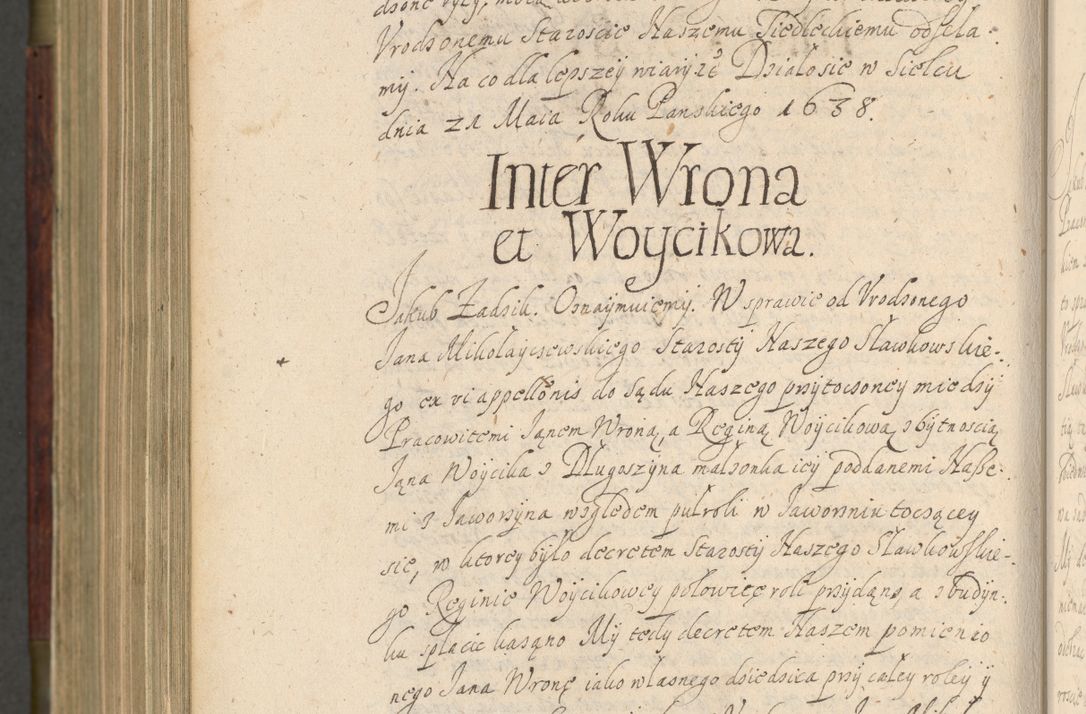 Vrodzonemu Staroscie Naszemu Siedleckiemu odsela-
my. Na co dla lepszey wiary etc Działosie w Sielcu
dnia 21 Maia Roku Panskiego 1638.
Inter Wrona
et Woycikowa.
Jakub Zadzik. Oznaymuiemy. W sprawie od Vrodzonego
Jana Mikołayczewskiego Starosty Naszego Sławkowskie-
go ex vi appellōnis do sądu Naszego przytoczoney miedzy
Pracowitemi Janem Wroną, a Reginą Woycikową, z bytnoscią
Jana Woycika z Długoszyna małzonka icy poddanemi Nasze-
mi z Jaworzyna względem pułroli w Jaworzniu toczącey
sie, w ktorey było decretem Starosty Naszego Sławkowskie-
go Reginie Woycikowey połowicę roli przydano, a z budyn-
ku spłacic kazano My tedy decretem Naszem pomienio
nego Jana Wronę iako własnego dziedzica przy całey roley y